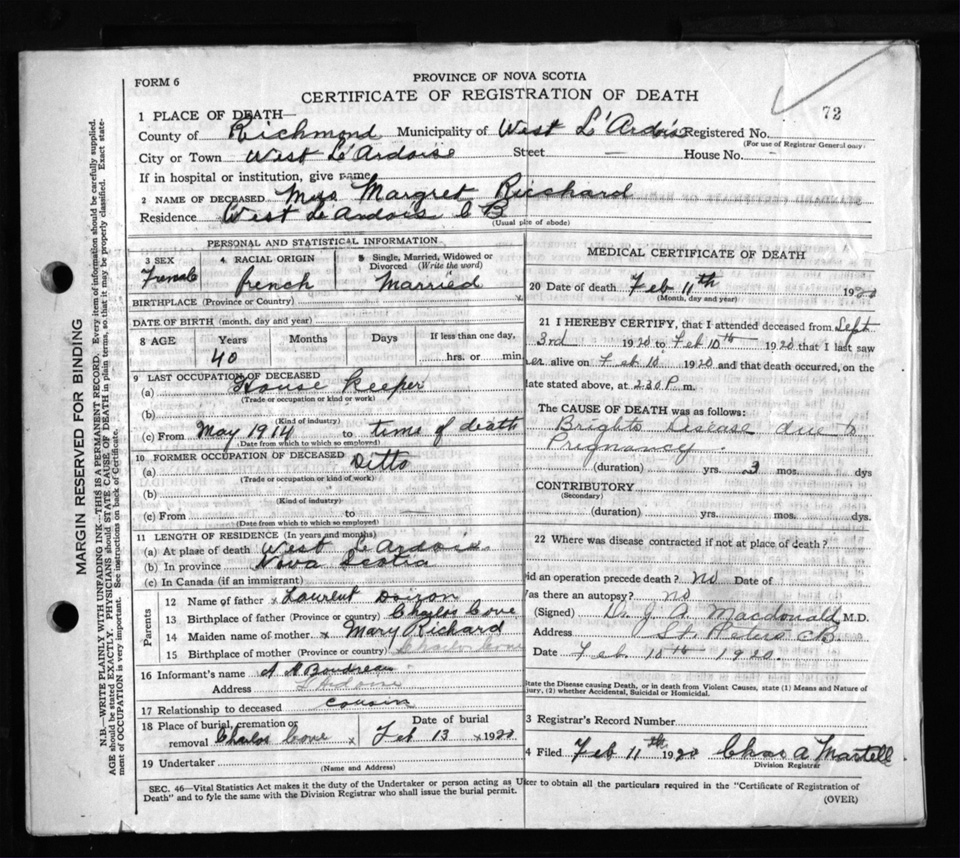 PROVINCE OF NOVA SCOTIA
FORM 6
CERTIFICATE OF REGISTRATION OF DEATH
72
1 PLACE OF DEATH—
County of Richmond Municipality of West L'Ardoise Registered No.
(For use of Registrar General only)
City or Town West L'Ardoise Street — House No. —
If in hospital or institution, give name
2 NAME OF DECEASED Mrs Margret Richard
Residence West L'Ardois C B
(Usual place of abode)
PERSONAL AND STATISTICAL INFORMATION
3 SEX 4 RACIAL ORIGIN 5 Single, Married, Widowed or Divorced (Write the word)
french Married
BIRTHPLACE (Province or Country)
DATE OF BIRTH (month, day and year)
8 AGE Years Months Days If less than one day,
40 hrs. or min.
9 LAST OCCUPATION OF DECEASED
(a) House Keeper
(Trade or occupation or kind or work)
(b)
(Kind of industry)
(c) From May 1914 to time of death
(Date from which to which so employed)
10 FORMER OCCUPATION OF DECEASED
(a) Ditto
(Trade or occupation or kind of work)
(b)
(Kind of industry)
(c) From to —
(Date from which to which so employed)
11 LENGTH OF RESIDENCE (In years and months)
(a) At place of death West L'Ardois
(b) In province Nova Scotia
(c) In Canada (if an immigrant)
Parents
12 Name of father x Laurent
13 Birthplace of father (Province or country) Charlos Cove
14 Maiden name of mother x Mary Richard
15 Birthplace of mother (Province or country) Charlos Cove
16 Informant's name A A Boudreau
Address L'Ardoise
17 Relationship to deceased cousin
18 Place of burial, cremation or removal Charlos Cove x Date of burial Feb 13 x 1920
19 Undertaker
(Name and Address)
MEDICAL CERTIFICATE OF DEATH
20 Date of death Feb 11th 1920
(Month, day and year)
21 I HEREBY CERTIFY, that I attended deceased from Sept
3rd 1920 to Feb 10th 1920 that I last saw
er alive on Feb 10 1920 and that death occurred, on the
late stated above, at 2.30 P. m.
The CAUSE OF DEATH was as follows:
Brights Disease due to
Pregnancy.
(duration) yrs. 3 mos. dys
CONTRIBUTORY
(Secondary)
(duration) yrs. mos. dys.
22 Where was disease contracted if not at place of death?
id an operation precede death? No Date of
as there an autopsy? no
(Signed) Dr. J. A. Macdonald M.D.
Address St. Peters CB
Date Feb. 10th 1920.
State the Disease causing Death, or in death from Violent Causes, state (1) Means and Nature of
jury, (2) whether Accidental, Suicidal or Homicidal.
3 Registrar's Record Number
4 Filed Feb 11th 1920 Chas A Martell
Division Registrar
SEC. 46—Vital Statistics Act makes it the duty of the Undertaker or person acting as U ker to obtain all the particulars required in the "Certificate of Registration of
Death" and to fyle the same with the Division Registrar who shall issue the burial permit.
(OVER)
MARGIN RESERVED FOR BINDING
N.B.—WRITE PLAINLY WITH UNFADING INK—THIS IS A PERMANENT RECORD. Every item of information should be carefully supplied.
AGE should be stated EXACTLY. PHYSICIANS should STATE CAUSE OF DEATH in plain terms, so that it may be properly classified. Exact state-
ment of OCCUPATION is very important. See instructions on back of Certificate.